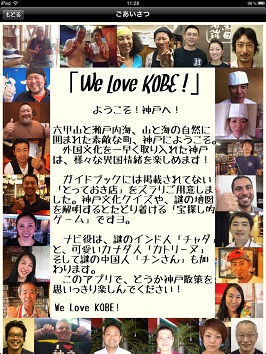 iPad 11:28 98%
もどる ごあいさつ
「We Love KOBE!」
ようこそ！神戸へ！
六甲山と瀬戸内海、山と海の自然に
囲まれた素敵な町、神戸にようこそ。
外国文化を一早く取り入れた神戸
は、様々な異国情緒を楽しめます！
ガイドブックには掲載されてない
「とっておき店」をズラリご用意しま
した。神戸文化クイズや、謎の地図
を解明するとたどり着ける「宝探し的
ゲーム」ですヨ。
ナビ役は、謎のインド人「チャダ」
と、可愛いカナダ人「カトリーヌ」
そして謎の中国人「チンさん」も加
わります。
このアプリで、どうか神戸散策を
思いっきり楽しんでください！
We Love KOBE!